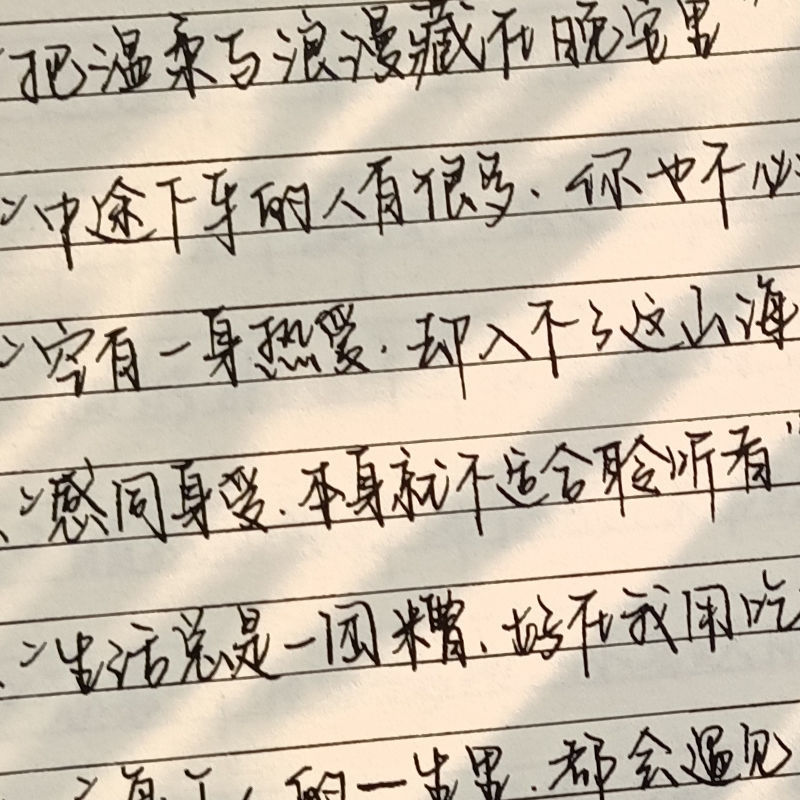 把温柔与浪漫藏在晚安里"
中途下车的人有很多.你也不必
空有一身热爱.却入不了这山海
感同身受.本身就不适合聆听着"
生活总是一团糟.好在我困吃
的一生里.都会遇见